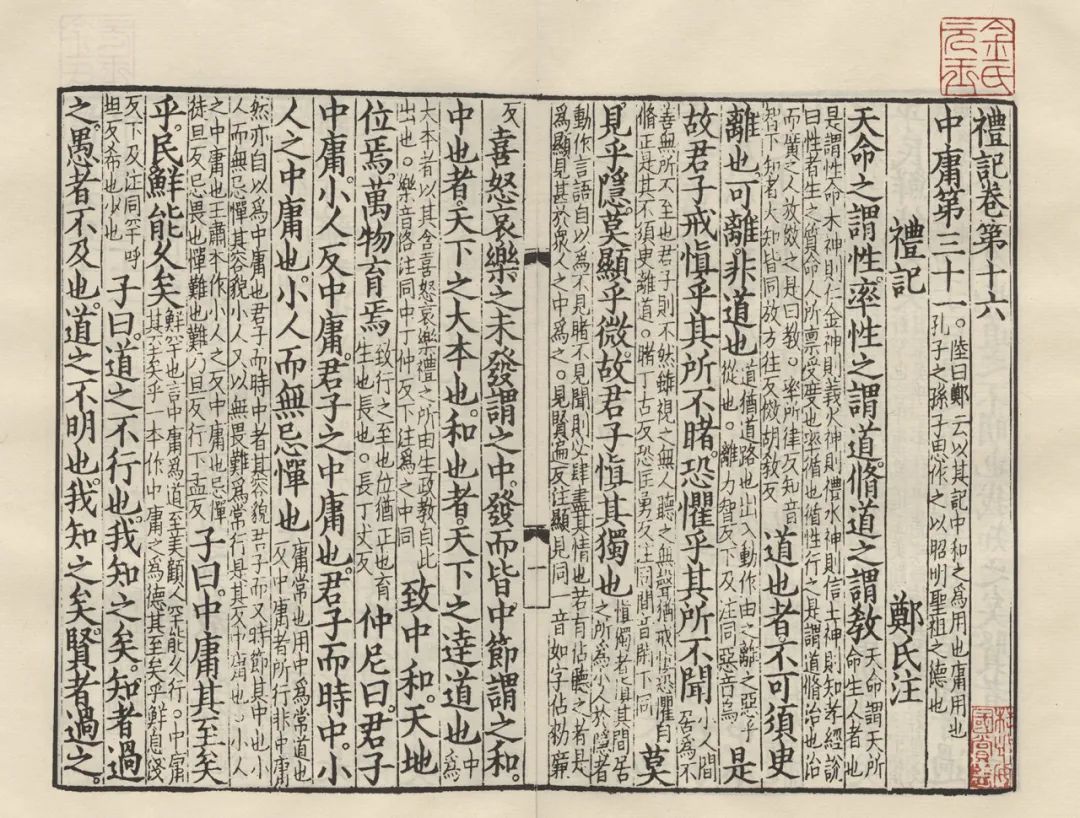 禮記卷第十六
中庸第三十一。陸曰鄭云以其記中和之為用也庸用也孔子之孫子思作之以昭明聖祖之德也
禮記　鄭氏注
天命之謂性。率性之謂道。脩道之謂教天命謂天所命生人者也
是謂性命木神則仁金神則義火神則禮水神則信土神則知孝經說曰性者生之質命人所稟受度也率循也循性行之是謂道脩治也治
而廣之人放傚之是曰教。率所律反知音智下知者大知皆同放方往反傚胡教反　道也者不可須臾
離也可離。非道也道猶道路也出入動作由之離之惡乎從也。離力智反下及注同惡音烏　是
故君子戒慎乎其所不睹。恐懼乎其所不聞小人閒居為不
善無所不至也君子則不然雖視之無人聽之無聲猶戒慎恐懼自脩正是其不須臾離道。睹丁古反恐匡勇反注同閒音閑下同　莫
見乎隱。莫顯乎微。故君子慎其獨也慎獨者慎其閒居之所為小人於隱者
動作言語自以為不見睹不見聞則必肆盡其情也若有佔聽之者是為顯見甚於眾人之中為之。見賢遍反注顯見同一音如字佔勑廉
反　喜怒哀樂之未發謂之中。發而皆中節謂之和。
中也者。天下之大本也。和也者。天下之達道也中為
大本者以其含喜怒哀樂禮之所由生政教自此出也。樂音洛注同中丁仲反下注為之中同　致中和。天地
位焉。萬物育焉致行之至也位猶正也育生也長也。長丁丈反　仲尼曰。君子
中庸。小人反中庸。君子之中庸也。君子而時中。小
人之中庸也。小人而無忌憚也庸常也用中為常道也反中庸者所行非中庸
然亦自以為中庸也君子而時中者其容貌君子而又時節其中也小人而無忌憚其容貌小人又以無畏難為常行是其反中庸也。小人
之中庸也王肅本作小人之反中庸也忌憚徒旦反忌畏也憚難也難乃旦反行下孟反　子曰。中庸其至矣
乎。民鮮能久矣鮮罕也言中庸為道至美顧人罕能久行。中庸其至矣乎一本作中庸之為德其至矣乎鮮息淺
反下及注同罕呼坦反希也少也　子曰。道之不行也。我知之矣。知者過
之。愚者不及也。道之不明也。我知之矣。賢者過之。
金氏